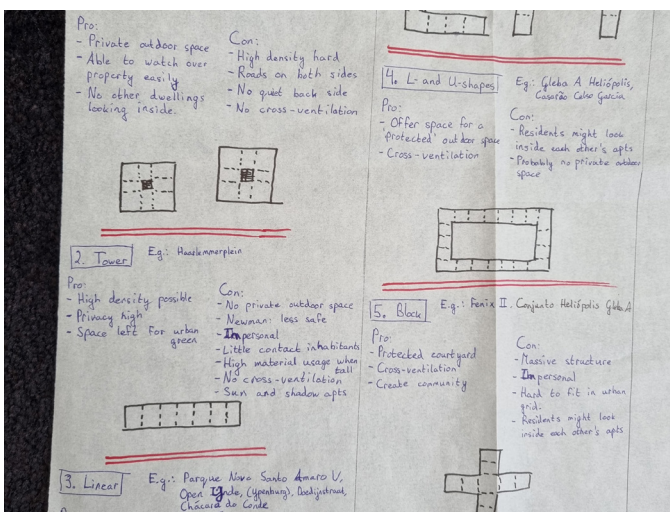 Pro:
- Private outdoor space
- Able to watch over
property easily
- No other dwellings
looking inside.
Con:
- High density hard
- Roads on both sides
- No quiet back side
- No cross-ventilation
2. Tower
E.g.: Haarlemmerplein
Pro:
- High density possible
- Privacy high
- Space left for urban
green
Con:
- No private outdoor space
- Newman: less safe
- Impersonal
- Little contact inhabitants
- High material usage when
tall
- No cross-ventilation
- Sun and shadow apts
3. Linear
E.g.: Parque Novo Santo Amaro V,
Open (Ypenburg),
Chácara do Conde
4. L- and U-shapes
E.g: Gleba A Heliópolis,
Casarão Celso Garcia
Pro:
- Offer space for a
'protected' outdoor space
- Cross-ventilation
Con:
- Residents might look
inside each other's apts
- Probably no private outdoor
space
5. Block
E.g.: Fenix II. Conjunto Heliópolis Gleba A
Pro:
- Protected courtyard
- Cross-ventilation
- Create community
Con:
- Massive structure
- Impersonal
- Hard to fit in urban
grid.
- Residents might look
inside each other's apts